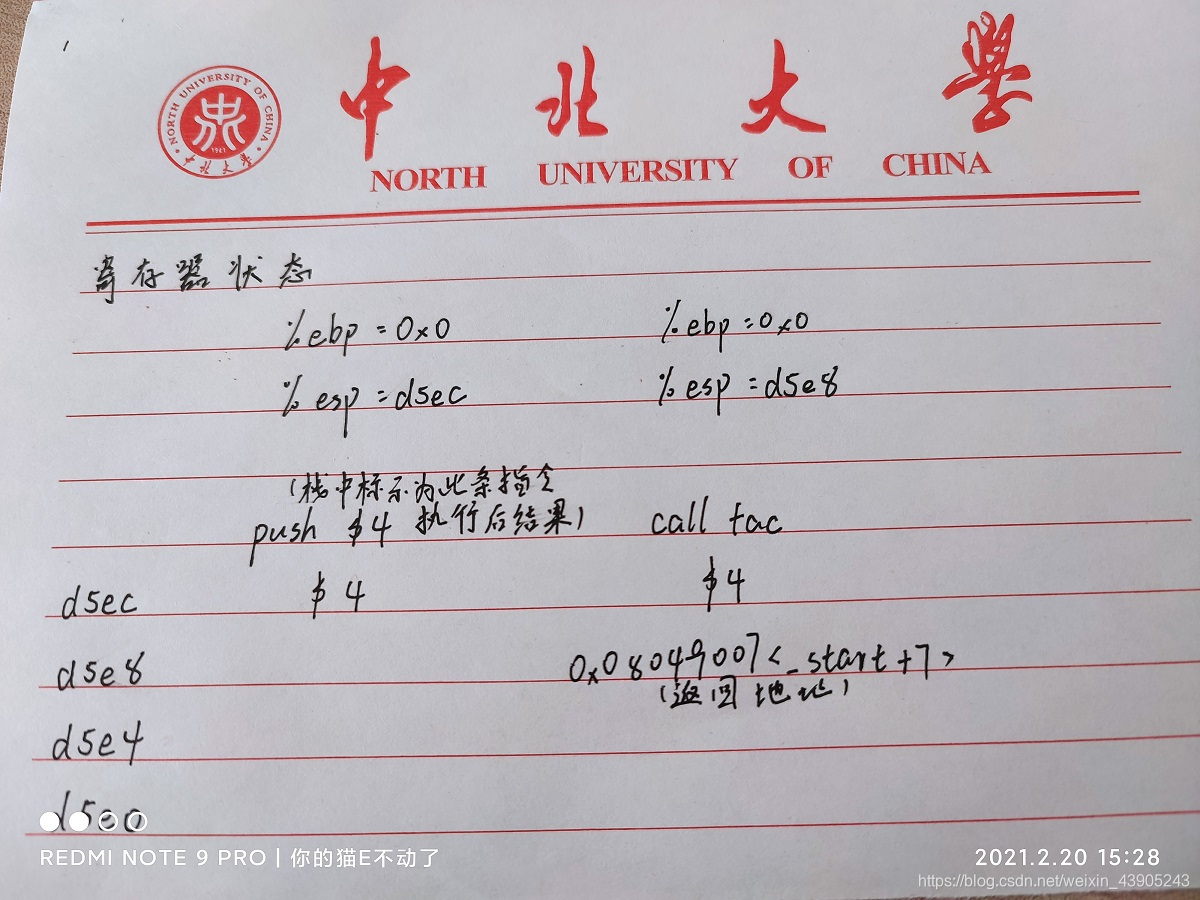 1
中北大学
NORTH UNIVERSITY OF CHINA
NORTH UNIVERSITY OF CHINA
1941
中北大学
寄存器状态
%ebp = 0x0 %ebp = 0x0
%esp = d5ec %esp = d5e8
(栈中标示为此条指令
push $4 执行后结果) call fac
d5ec $4 $4
d5e8 0x08049007<_start+7>
(返回地址)
d5e4
d5e0
REDMI NOTE 9 PRO | 你的猫E不动了
2021.2.20 15:28
https://blog.csdn.net/weixin_43905243